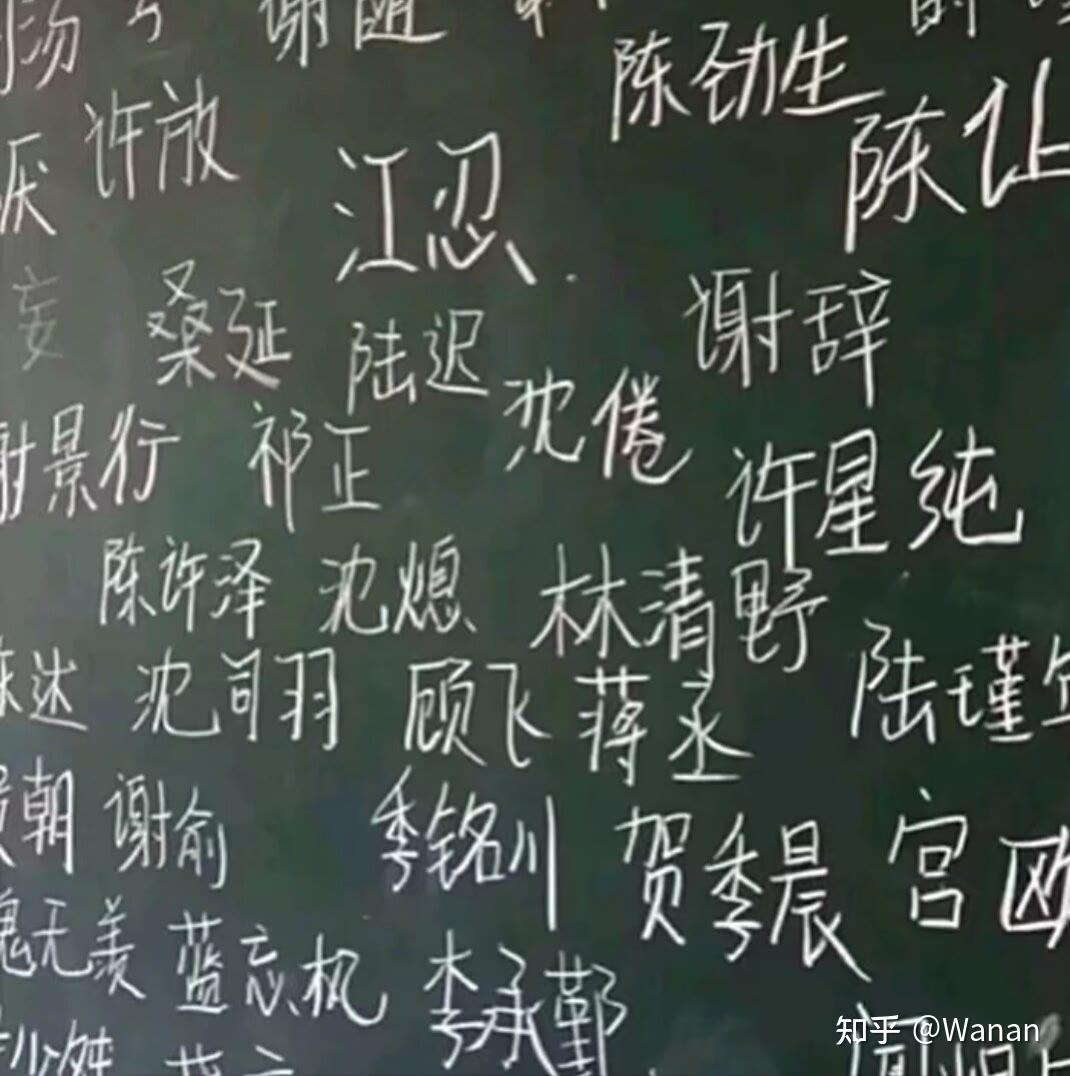 谢随
陈劲生
许放
陈让
江忍
厌
妄
桑延
陆迟
谢辞
沈倦
谢景行
祁正
许星纯
陈许泽
沈熄
林清野
陈达
沈司羽
顾飞
蒋丞
陆瑾
朝
谢俞
季铭川
贺季晨
宫欧
魏无羡
蓝忘机
李承鄞
知乎 @Wanan